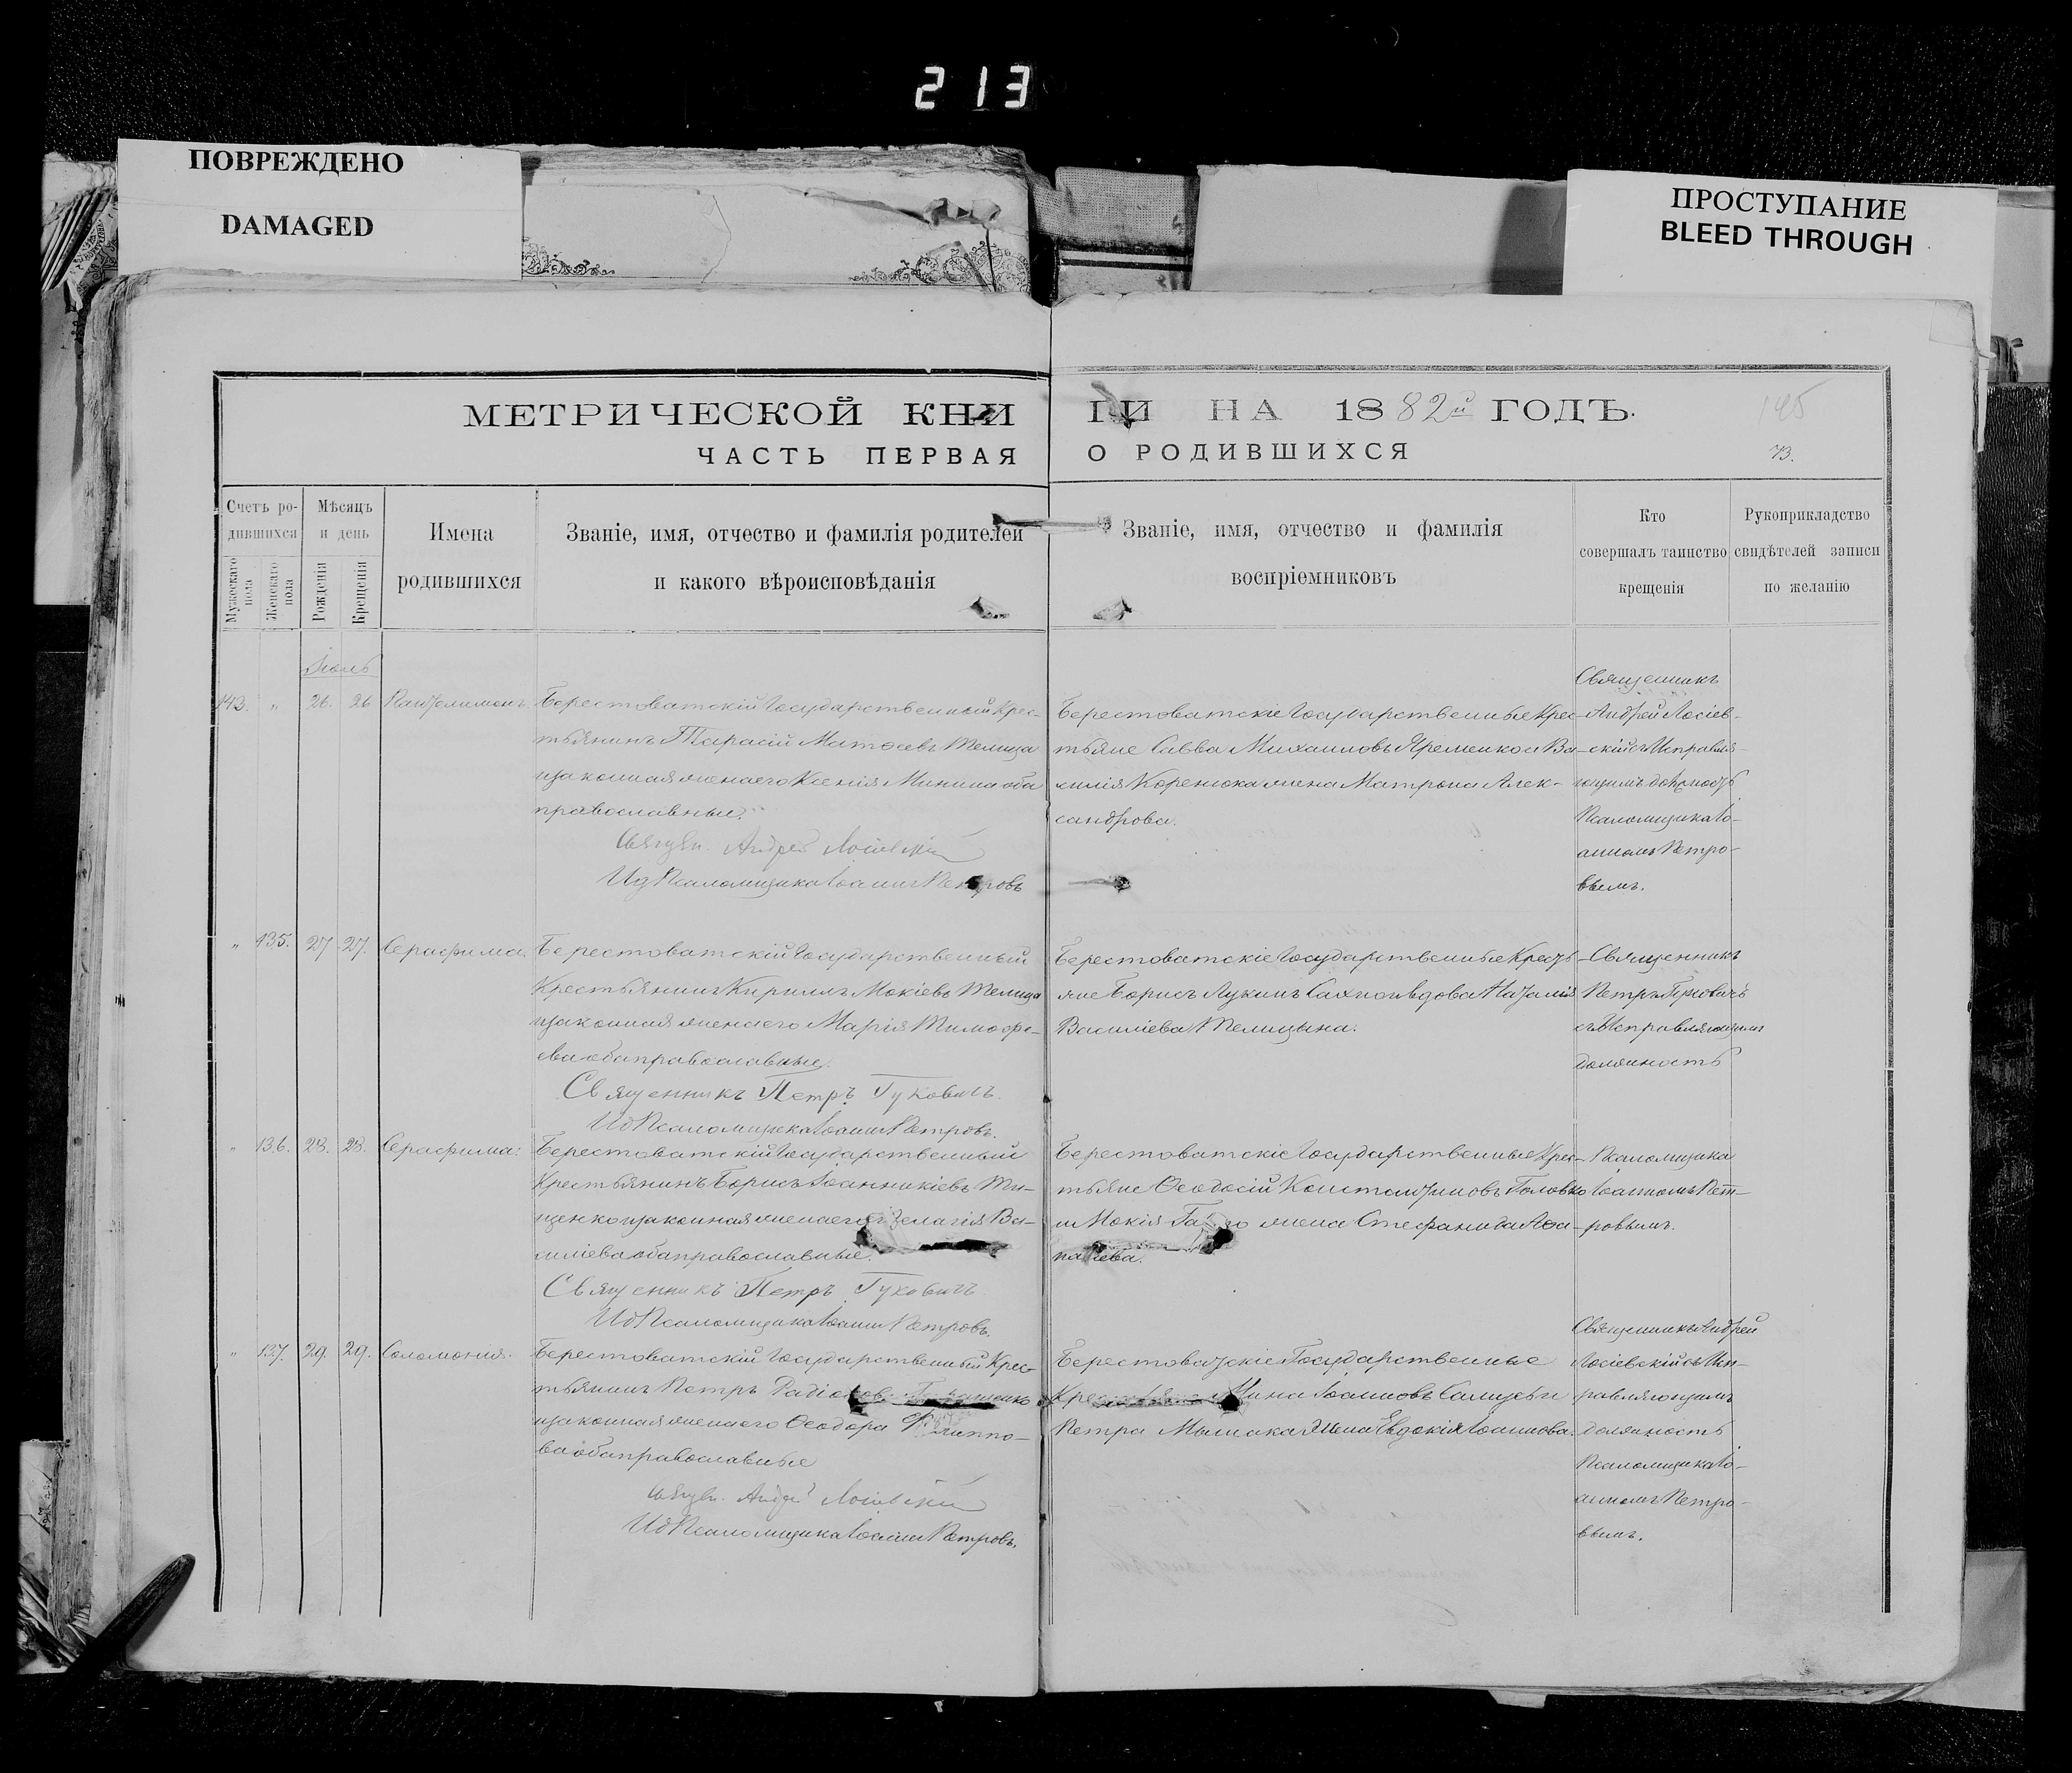 213
ПОВРЕЖДЕНО
DAMAGED
ПРОСТУПАНИЕ
BLEED THROUGH
МЕТРИЧЕСКОЙ КНИ
ГИ НА 1882й ГОДЪ.
145
ЧАСТЬ ПЕРВАЯ
О РОДИВШИХСЯ
73.
Счетъ ро-
дившихся
Мужескаго пола
Женскаго пола
Мѣсяцъ
и день
Рожденія
Крещенія
Имена
родившихся
Званіе, имя, отчество и фамилія родителей
и какого вѣроисповѣданія
Званіе, имя, отчество и фамилія
воспріемниковъ
Кто
совершалъ таинство
крещенія
Рукоприкладство
свидѣтелей записи
по желанію
Іюль
143. " 26. 26 Пантелимонъ.
Берестоватскій Государственный Крес-
тьянинъ Тарасій Матѳеевъ Телица
и законная жена его Ксенія Минина оба
православные.
Андрей Лосіевскій
Ид Псаломщика Іоаннъ Петровъ
Берестоватскіе Государственные Крес-
тьяне Савва Михаиловъ Яременко и Ва-
силія Коренюка жена Матрона Алек-
сандрова.
Священникъ
Андрей Лосіев-
скій съ Исправля-
ющимъ должность
Псаломщика Іо-
анномъ Петро-
вымъ.
" 135. 27 27. Серафима.
Берестоватскій Государственный
Крестьянинъ Кириллъ Мокіевъ Телица
и законная жена его Марія Тимоѳе-
ева оба православные.
Священникъ Петръ Гуковичъ.
Ид Псаломщика Іоаннъ Петровъ.
Берестоватскіе Государственные Кресть-
яне Борисъ Лукинъ Сахно и вдова Наталія
Василіева Телицына.
Священникъ
Петръ Гуковичъ
съ Исправляющимъ
должность
" 136. 28. 28. Серафима.
Берестоватскій Государственный
Крестьянинъ Борисъ Іоанникіевъ Ти-
щенко и законная жена его Пелагія Ва-
силіева оба православные.
Священникъ Петръ Гуковичъ
Ид Псаломщика Іоаннъ Петровъ.
Берестоватскіе Государственные Крес-
тьяне Ѳеодосій Константиновъ Головко
и Мокія жена Стефанида Аѳа-
насіева.
Псаломщика
Іоанномъ Пет-
ровымъ.
" 137. 29. 29. Соломонія.
Берестоватскій Государственный Крес-
тьянинъ Петръ Радіоновъ
и законная жена его Ѳеодора Филиппо-
ва оба православные
Андрей Лосіевскій
Ид Псаломщика Іоаннъ Петровъ.
Берестоватскіе Государственные
Крестьяне Мина Іоанновъ и
Петра жена Евдокія Іоаннова.
Священникъ Андрей
Лосіевскій съ Исп-
равляющимъ
должность
Псаломщика Іо-
анномъ Петро-
вымъ.